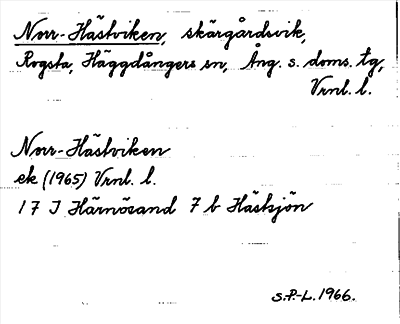 Norr-Hästviken, skärgårdsvik,
Rogsta, Häggdångers sn, Ång. s. doms. tg,
Vrnl. l.
Norr-Hästviken
ek (1965) Vrnl. l.
17 J Härnösand 7 b Hästsjön
S.P.-L. 1966.